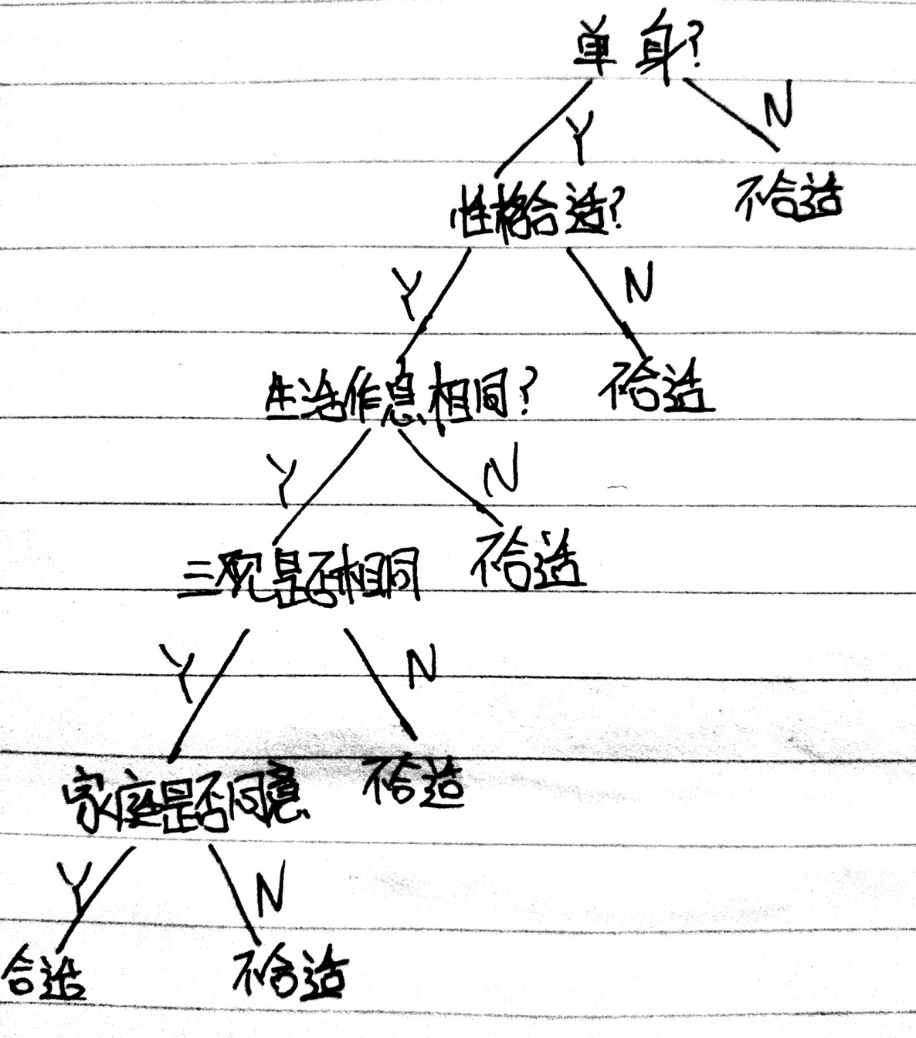 单身?
Y
N
性格合适?
不合适
Y
N
生活作息相同?
不合适
Y
N
三观是否相同
不合适
Y
N
家庭是否同意
不合适
Y
N
合适
不合适